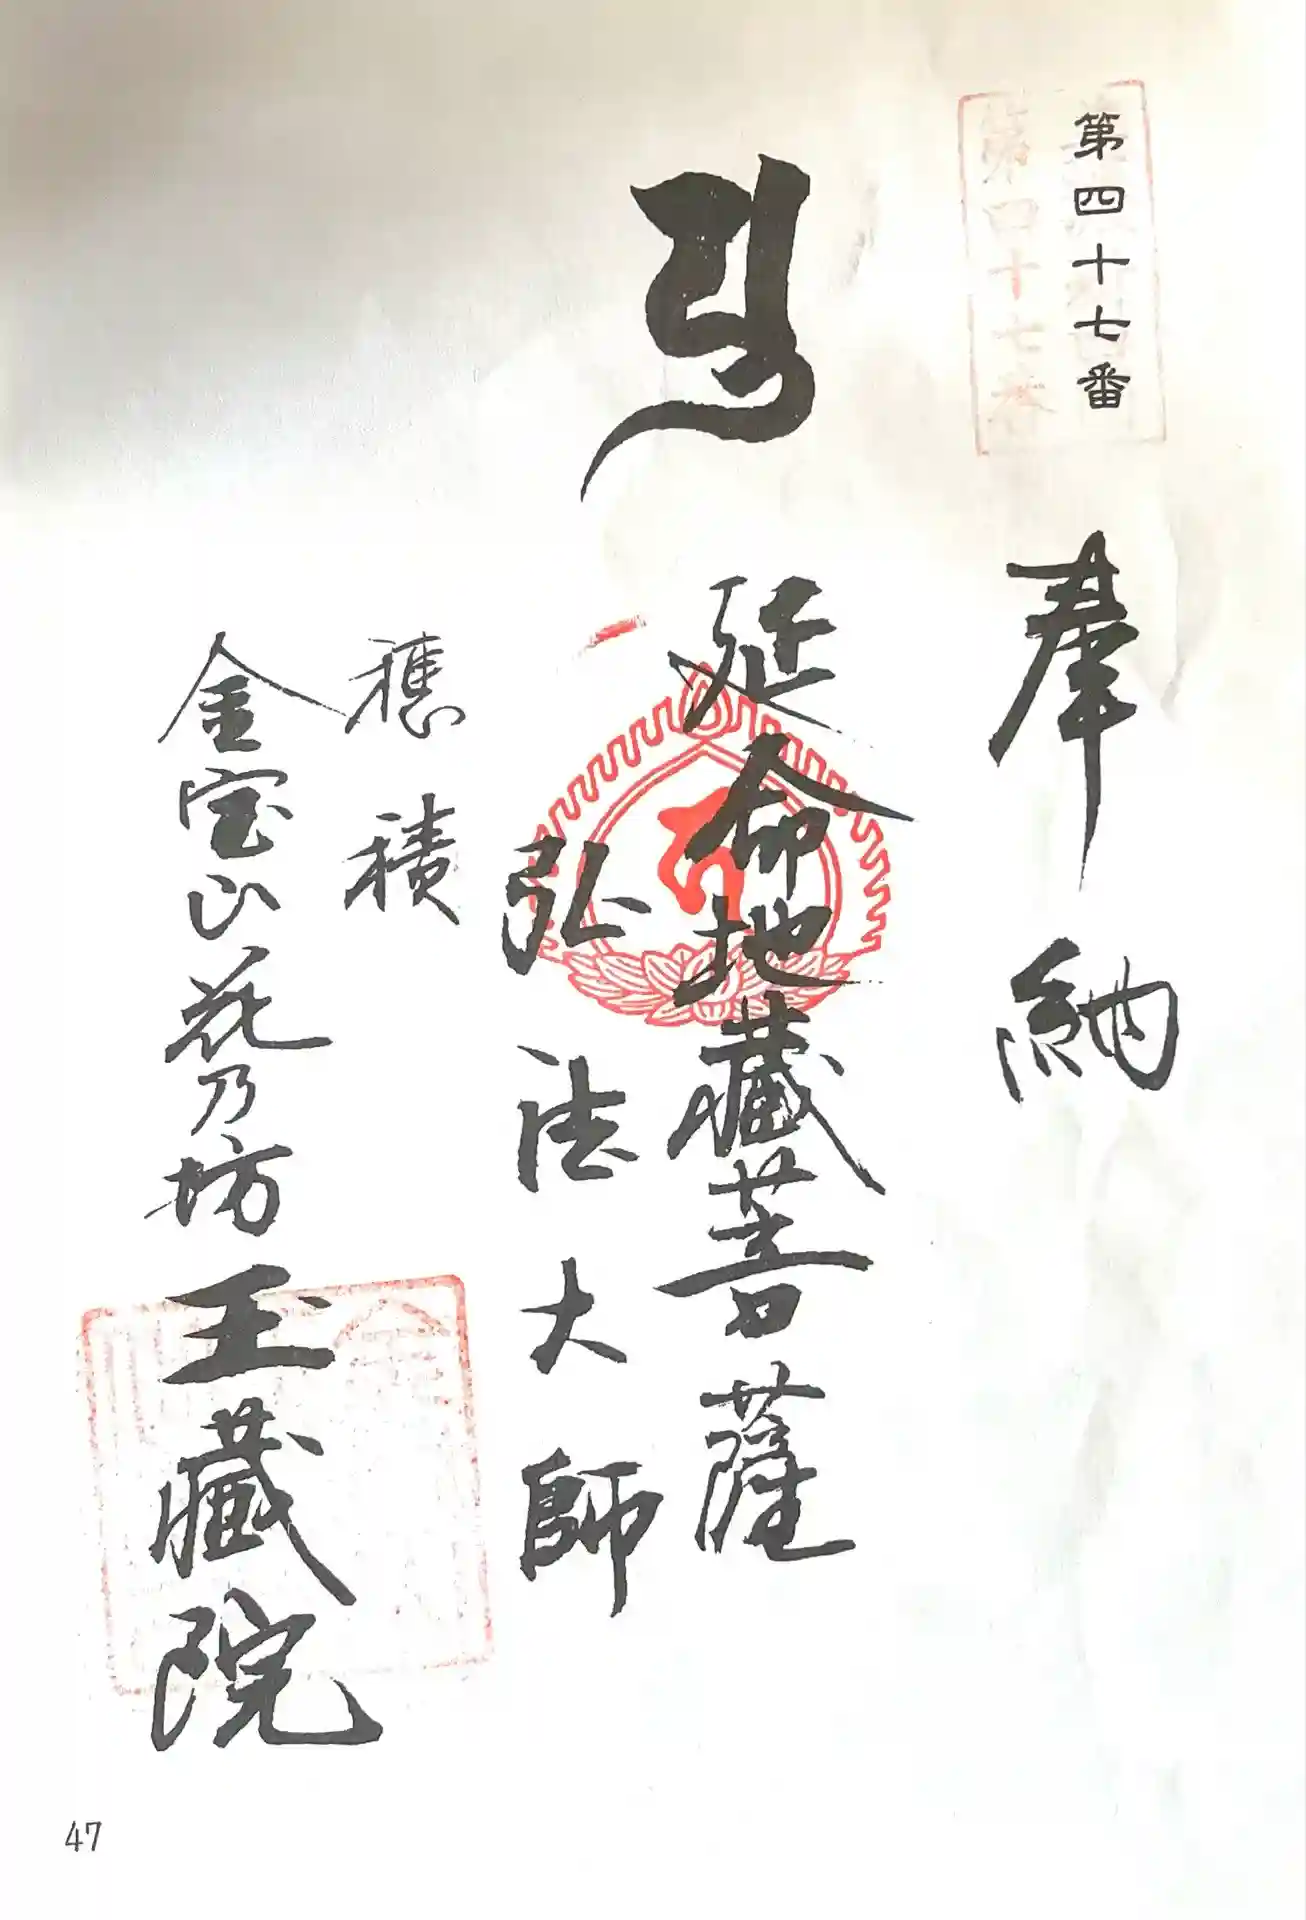 第四十七番
奉納
延命地蔵菩薩
弘法大師
穂積
金宝山花乃坊玉蔵院
第四十七番
47